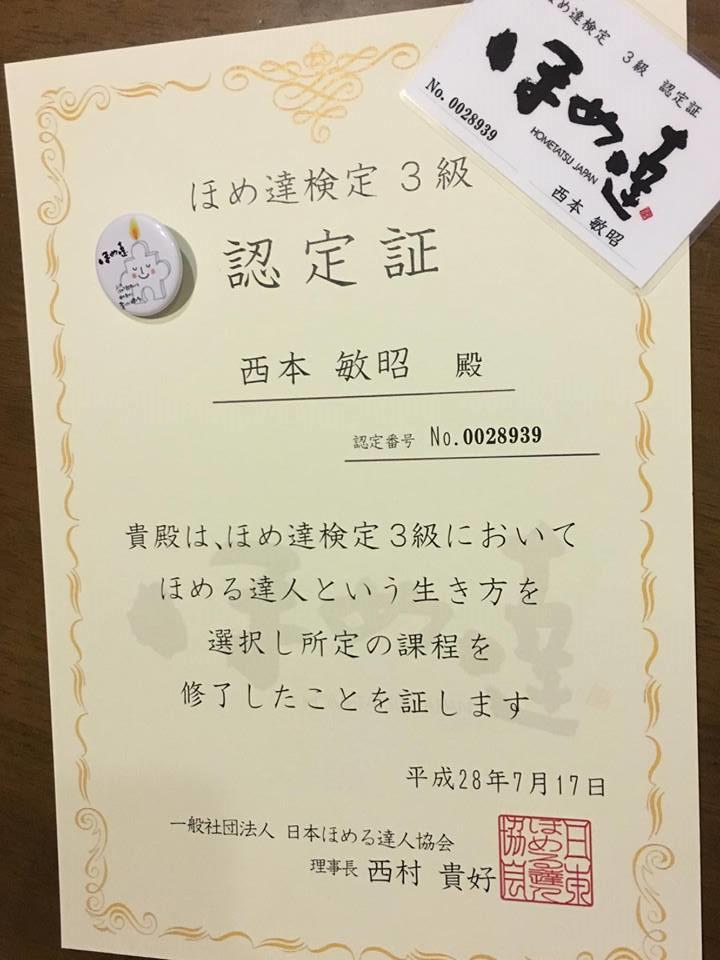 ほめ達検定 3級 認定証
ほめ達
HOMETATSU JAPAN
No. 0028939
西本 敏昭
ほめ達検定 3級
認定証
ほめ達
西本 敏昭 殿
認定番号 No. 0028939
貴殿は、ほめ達検定3級において
ほめる達人という生き方を
選択し所定の課程を
修了したことを証します
ほめ達
平成28年7月17日
一般社団法人 日本ほめる達人協会
理事長 西村 貴好